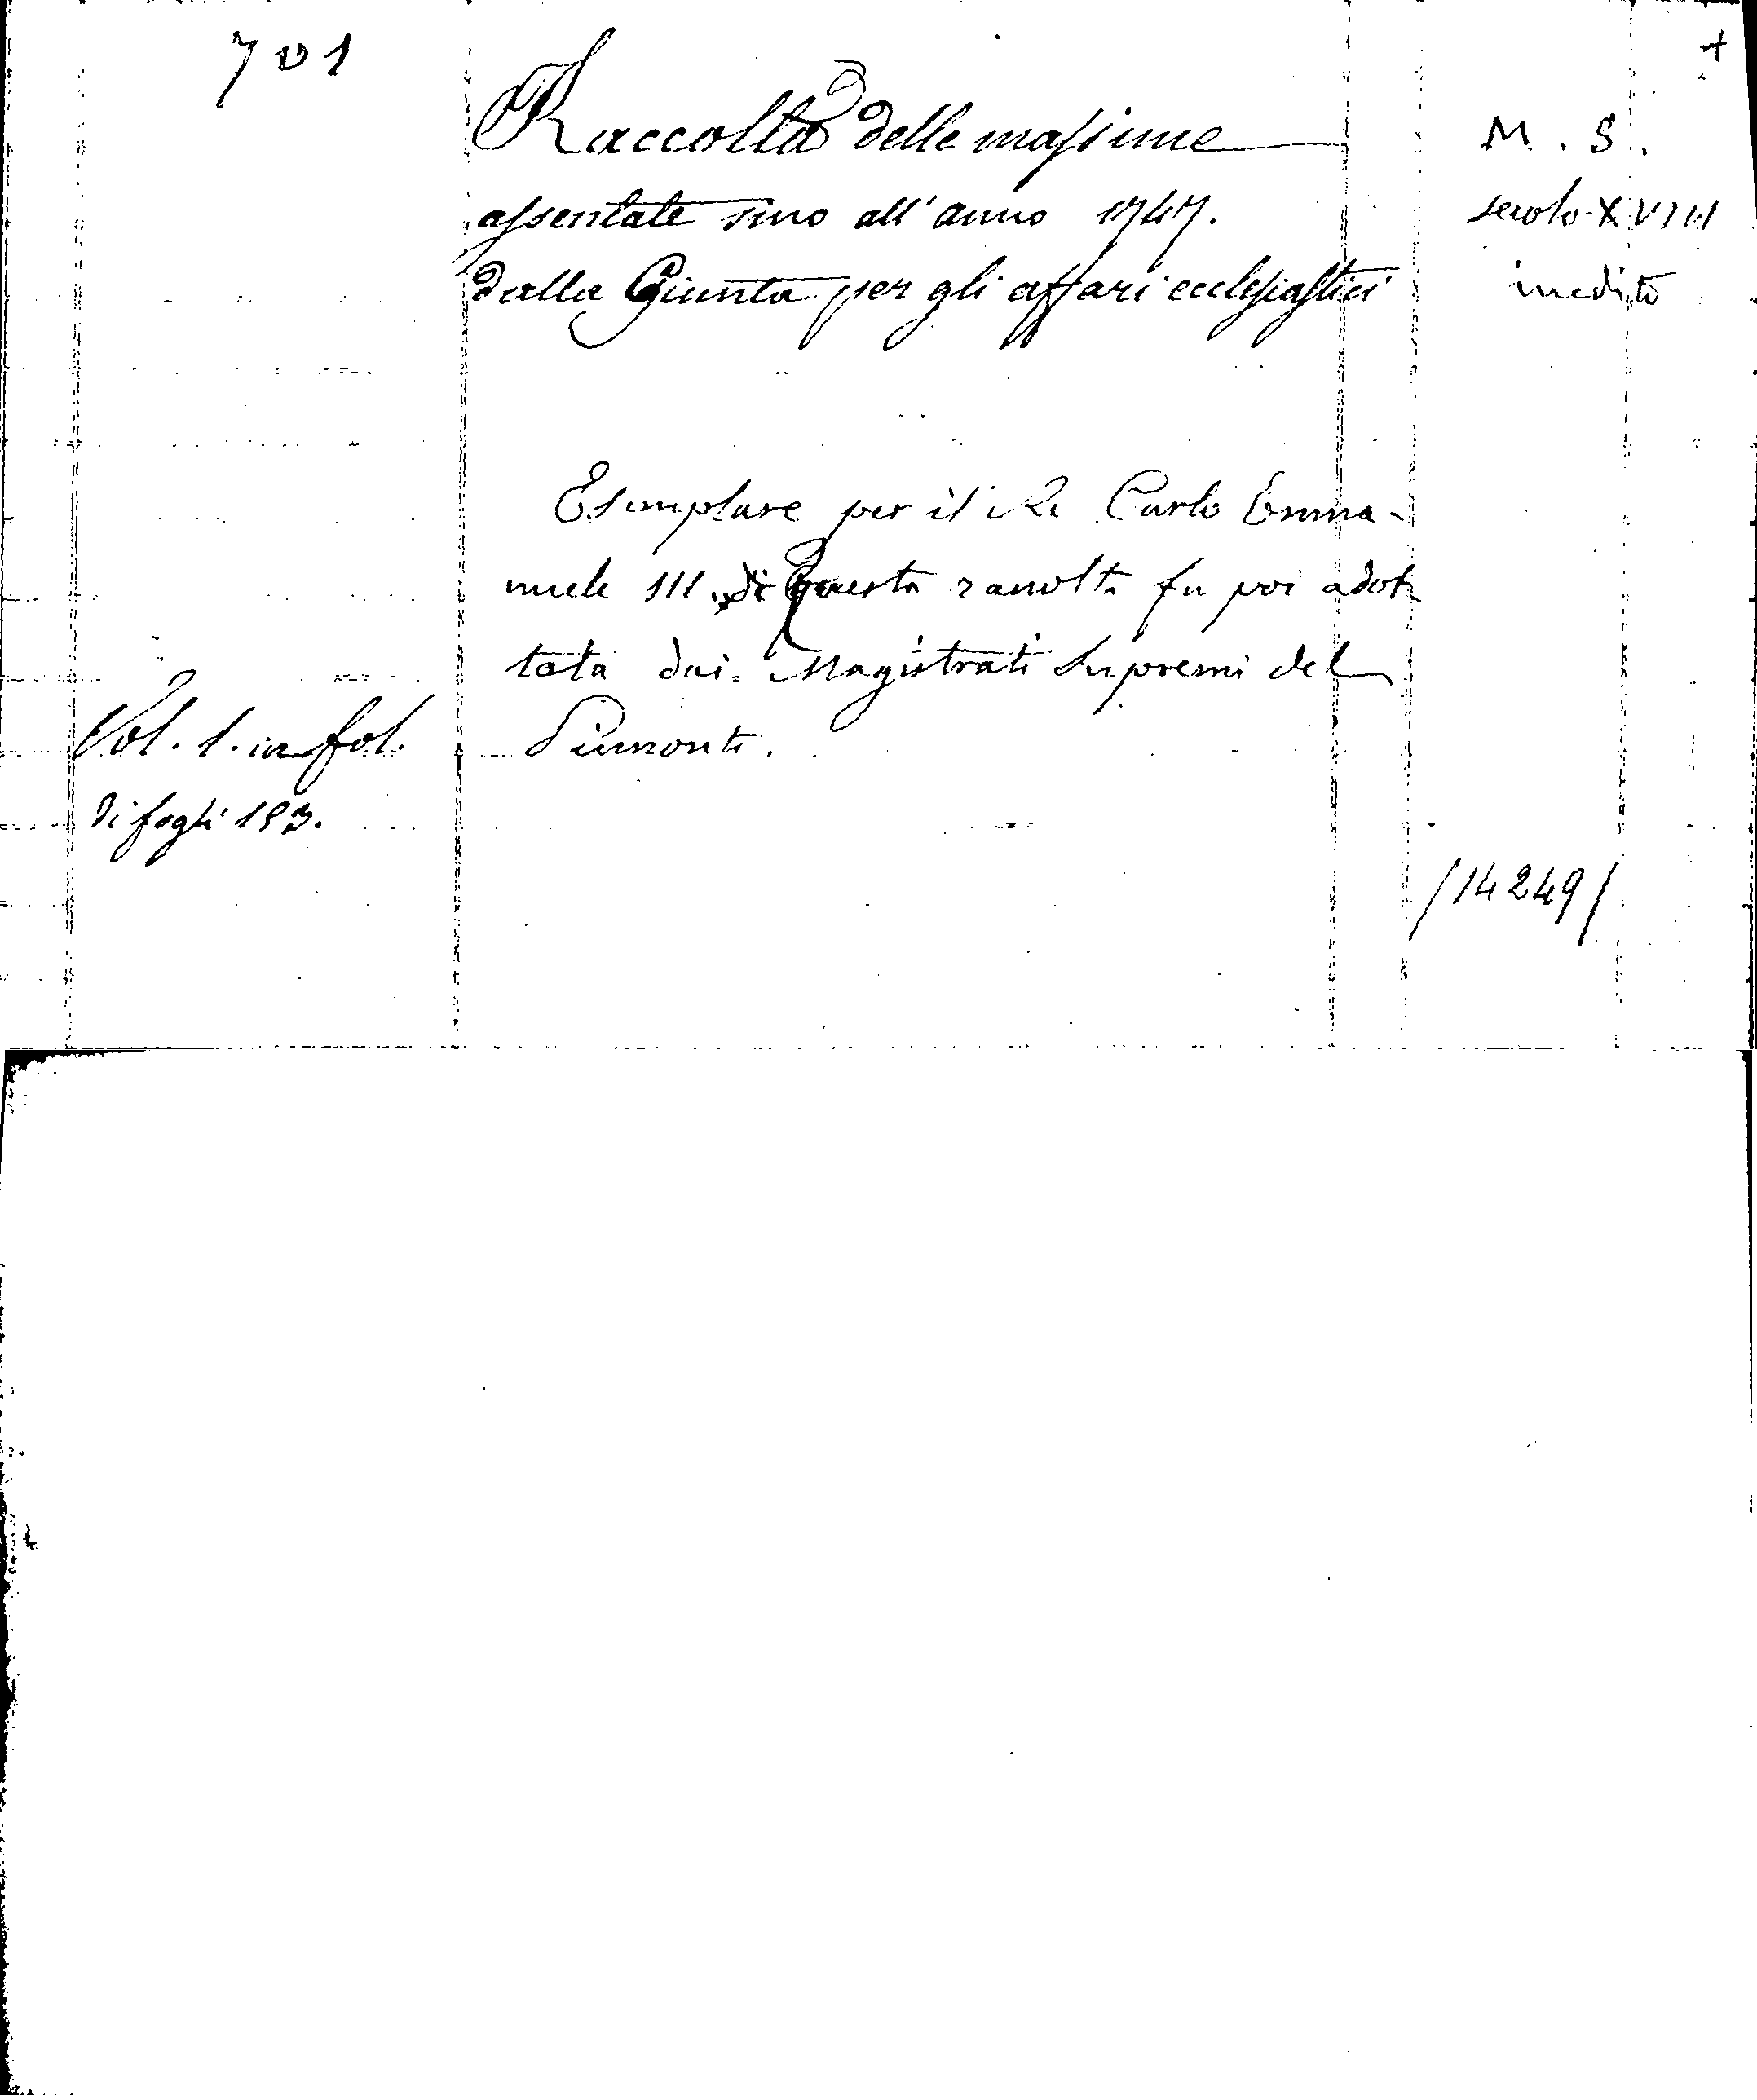 701
Raccolta delle massime
assentate sino all'anno 1747.
dalla Giunta per gli affari ecclesiastici
M. S.
secolo XVIII
inedito
Esemplare per il Re Carlo Emma-
nuele III. di Questa raccolta fu poi adot
tata dai Magistrati Supremi del
Piemonte.
Vol. 1. in fol.
di fogli 193.
/14249/